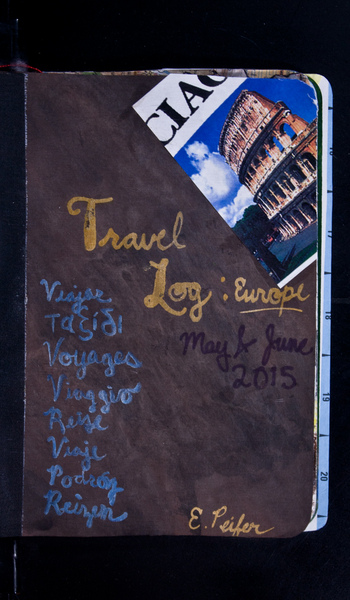 CIAO
Travel
Log : Europe
May & June
2015
Viajar
Ταξίδι
Voyages
Viaggio
Reise
Viaje
Podróż
Reizen
E. Peifer
16
17
18
19
20